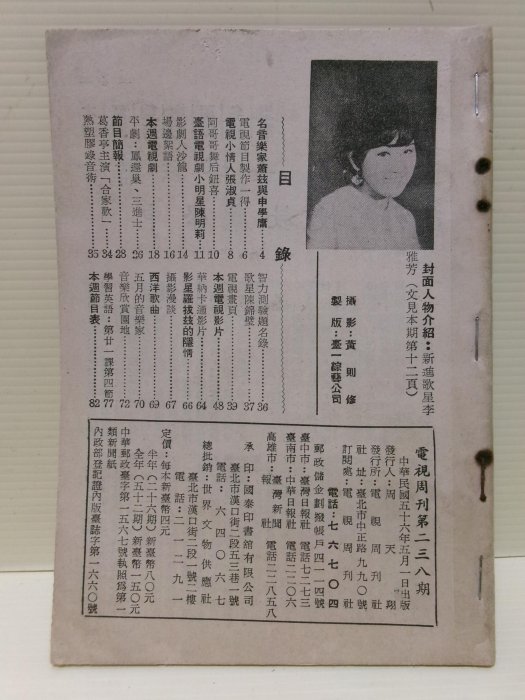 封面人物介紹：新進歌星李
雅芳（文見本期第十二頁）
攝影：黃則修
製版：臺一綜藝公司
目錄
名音樂家蕭茲與申學庸……4
電視節目製作一得……6
電視小情人張淑貞……8
阿哥哥舞后鈕喜……10
臺語電視劇小明星陳明莉……11
影劇人沙龍……14
場邊絮語……16
本週電視劇……18
平劇：鳳還巢、三進士……26
節目簡報……28
葛香亭主演「合家歡」……34
熱塑膠錄音術……35
智力測驗題名錄……36
歌星陳錦璧……37
電視畫頁……39
本週電視影片……48
華納卡通影片……64
影星羅拔茲的隱情……66
攝影漫談……67
西洋歌曲……69
五月的音樂家……70
音樂欣賞園地……72
學習英語：第廿一課第四節……77
本週節目表……82
電視周刊第二三八期
中華民國五十六年五月一日出版
發行人：周天翔
發行所：電視周刊社
社址：臺北市中正路九九〇號
訂閱處：電視周刊社
電話：七六七〇四
郵政儲金劃撥帳戶四一一四號
臺中市：臺灣日報社 電話七二七三
臺南市：中華日報社 電話二二〇六
高雄市：臺灣新聞報社 電話二二八五八
承印：國泰印書館有限公司
臺北市漢口街二段五三巷二號
電話：六四〇六七
總批銷：世界文物供應社
臺北市漢口街二段一號二樓
電話：二一二九一
定價：每本新臺幣四元
半年（二十六期）新臺幣八〇元
全年（五十二期）新臺幣一五〇元
中華郵政臺字第一五六七號執照為第一
類新聞紙
內政部登記證內版臺誌字第一六六〇號